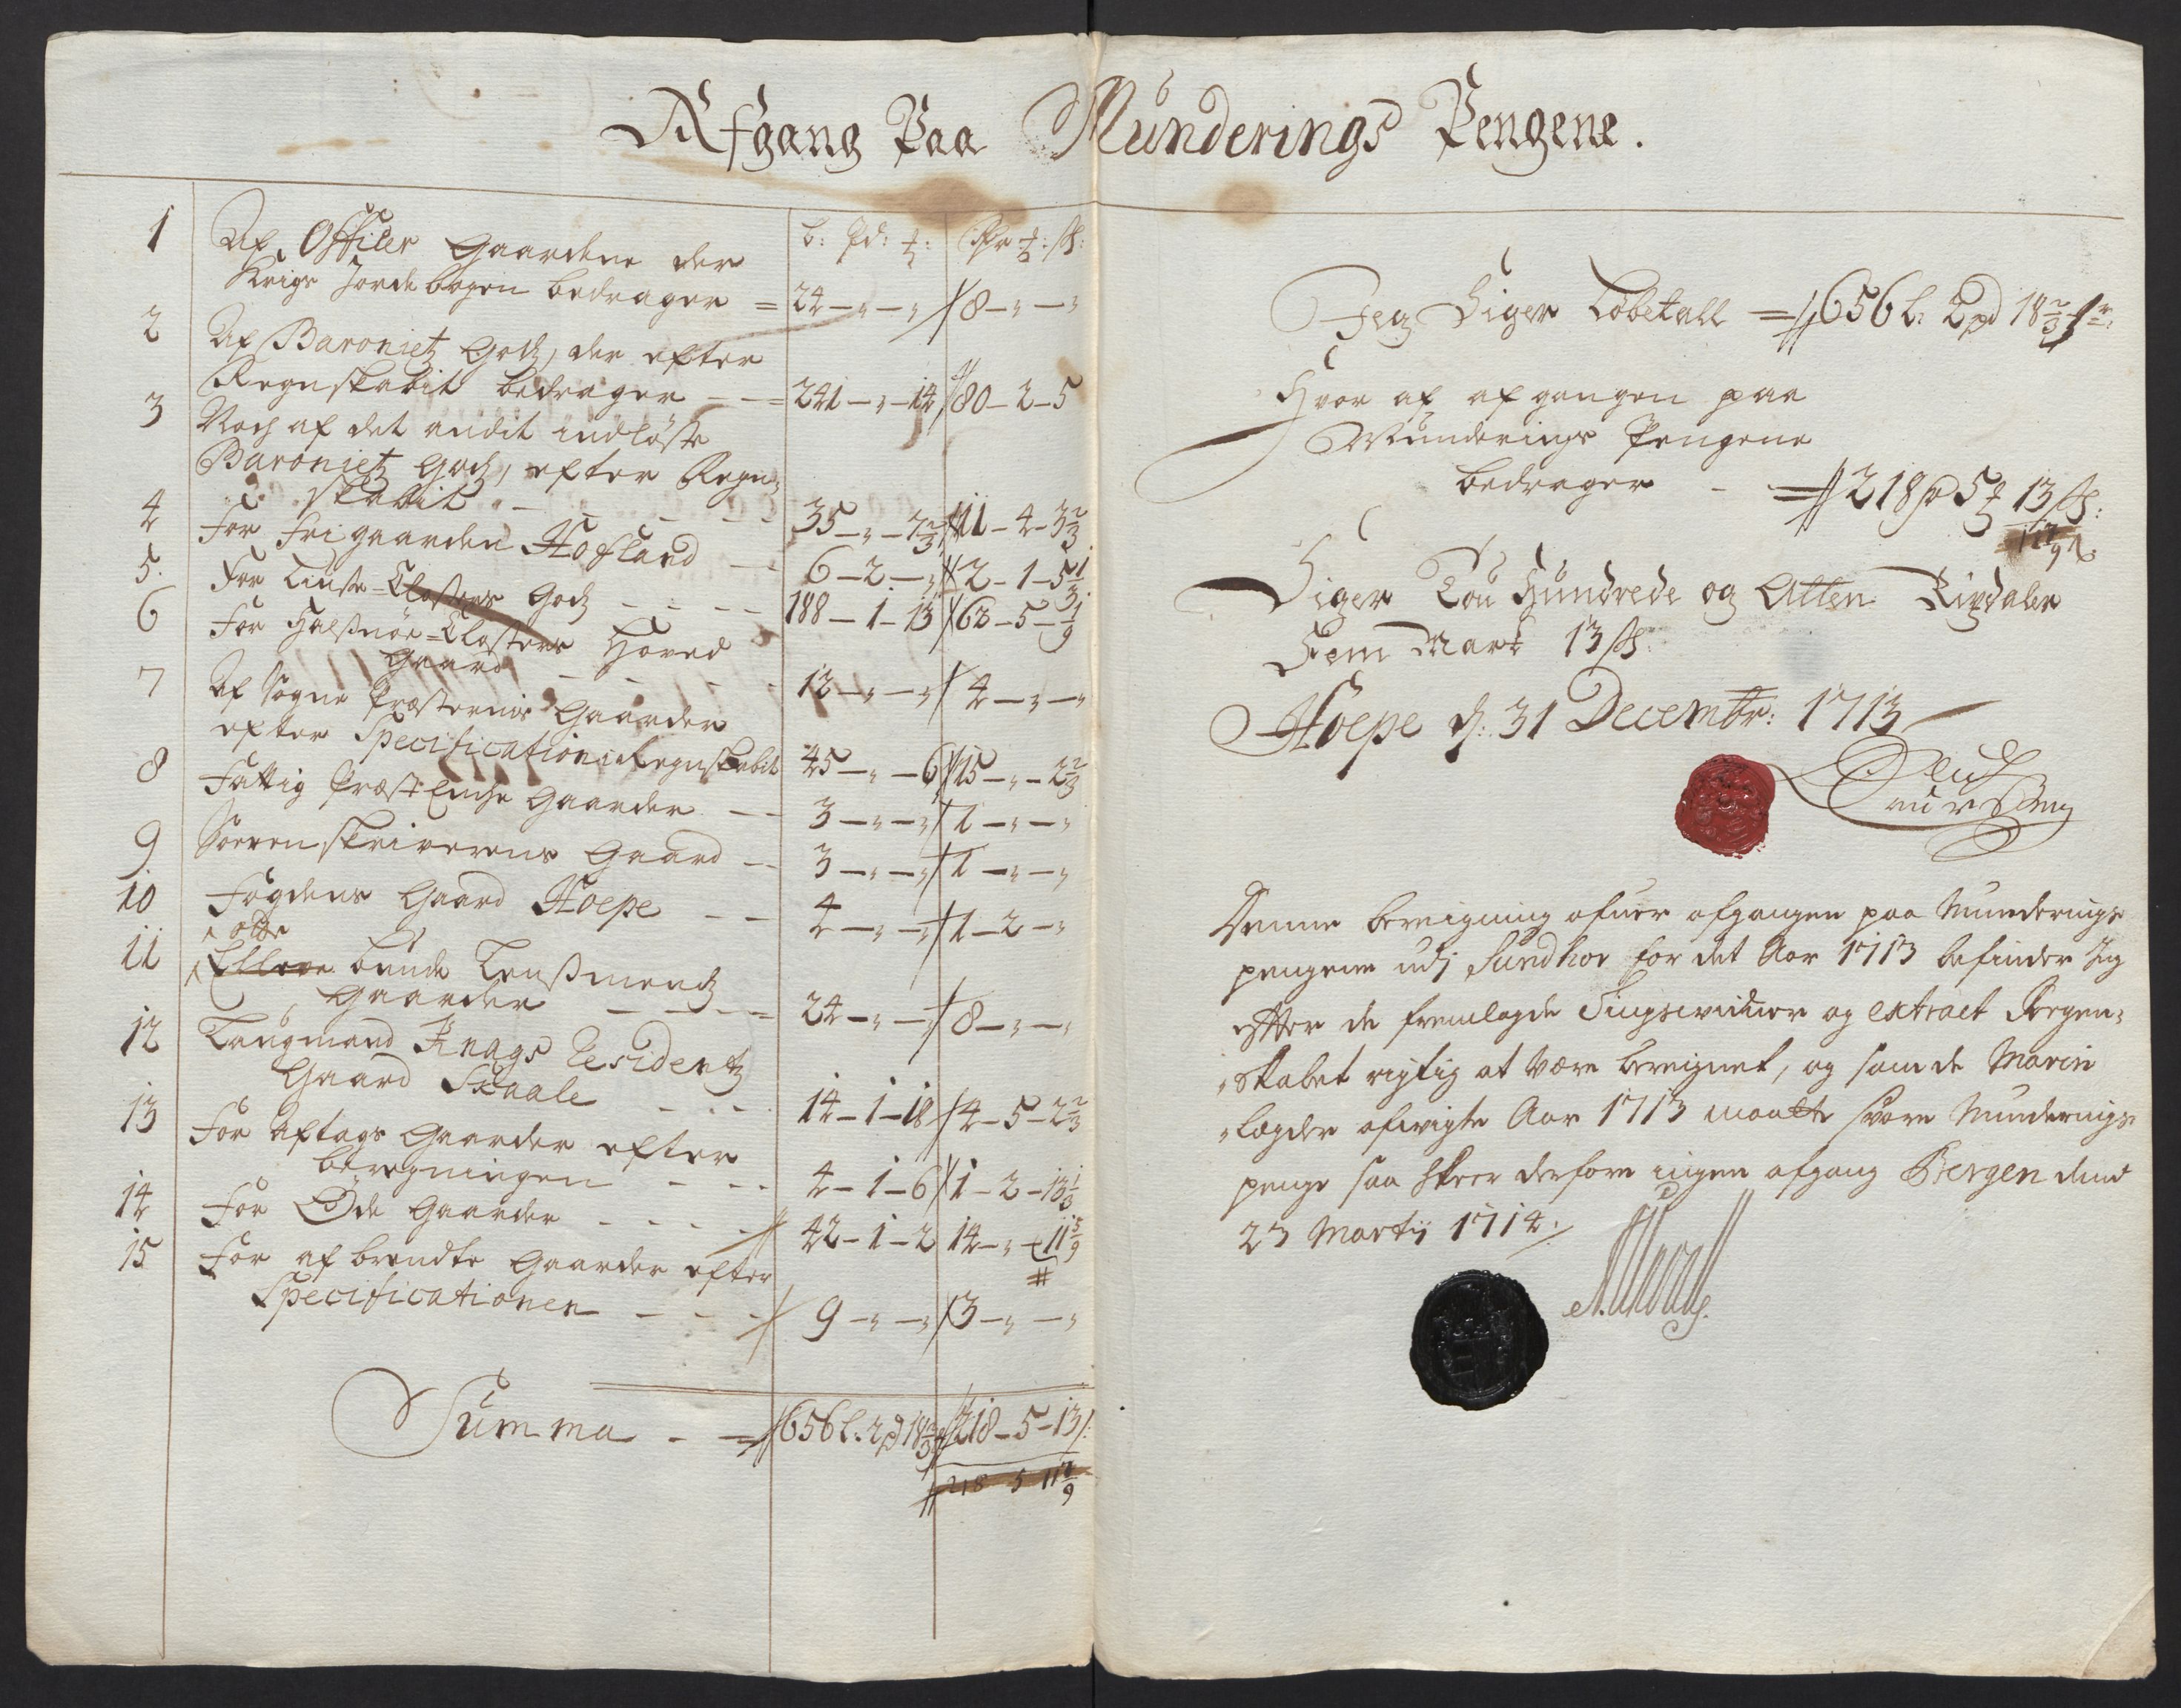 Afgang Paa Munderings Pengene.
L: Pd: ₰: Rdr ₰: ß:
1 Af Officer Gaardene der
Krigs Jordebogen bedrager = 24 – „ – „ 8 – „ – „
2 Af Baronietz Godtz, der efter
Regnskabit bedrager – – = 241 – „ – 14 80 – 2 – 5
3 Noch af det andit indløste
Baronietz Godtz, efter Regn-
skabit – – – – 35 – „ – 7 2/3 11 – 4 – 3 2/3
4 For Frigaarden Hofland – – 6 – 2 – „ 2 – 1 – 5 1/3
5. For Liuse-Closters Godtz – – – – 188 – 1 – 13 62 – 5 – 1/9
6 For Halsnøe-Closters Hoved
Gaard – – – – 12 – „ – „ 4 – „ – „
7 Af Sogne Præsternis Gaarder
efter Specification i Regnskabit 45 – „ – 6 15 – „ – 2 2/3
8 Fattig Præst Enche Gaarder – – 3 – „ – „ 1 – „ – „
9 Sorenskriverens Gaard – – 3 – „ – „ 1 – „ – „
10 Fogdens Gaard Hoepe – – 4 – „ – „ 1 – 2 – „
otte
11 Elleve bunde Lensmendtz
Gaarder – – – – 24 – „ – „ 8 – „ – „
12 Laugmand Knags Residentz
Gaard Skaale – – – 14 – 1 – 18 4 – 5 – 2 2/3
13 For Aftags Gaarder efter
beregningen – – – 4 – 1 – 6 1 – 2 – 13 1/3
14 For Øde Gaarder – – – – 42 – 1 – 2 14 – „ – 11 5/9
15 For af brendte Gaarder efter
Specificationen – – – 9 – „ – „ 3 – „ – „
Summa – = 656 L: 2 pd 18 2/3 218 – 5 – 13 ß:
218 5 11 7/9
Jeg Siger Løbetall = 656 L: 2 pd 18 2/3 mr:
Hvor af afgangen paa
Munderings Pengene
bedrager – = 218 rd 5 ₰ 13 ß:
11 7/9 ß
Siger Tou Hundrede og Atten Rixdaler
Fem Mark 13 ß:
Hoepe d: 31 Decembr: 1713
Denne bereigning ofuer afgangen paa Munderings
pengene udj Sundhor for det Aar 1713 befinder Jeg
efter de fremlagde Tingsvidner og extract Regen-
skabet rigtig at være bereignet, og som de Marine
lægder afvigte Aar 1713 maatte svare Munderings
penge saa skeer derfore ingen afgang Bergen dend
23 Martij 1714.